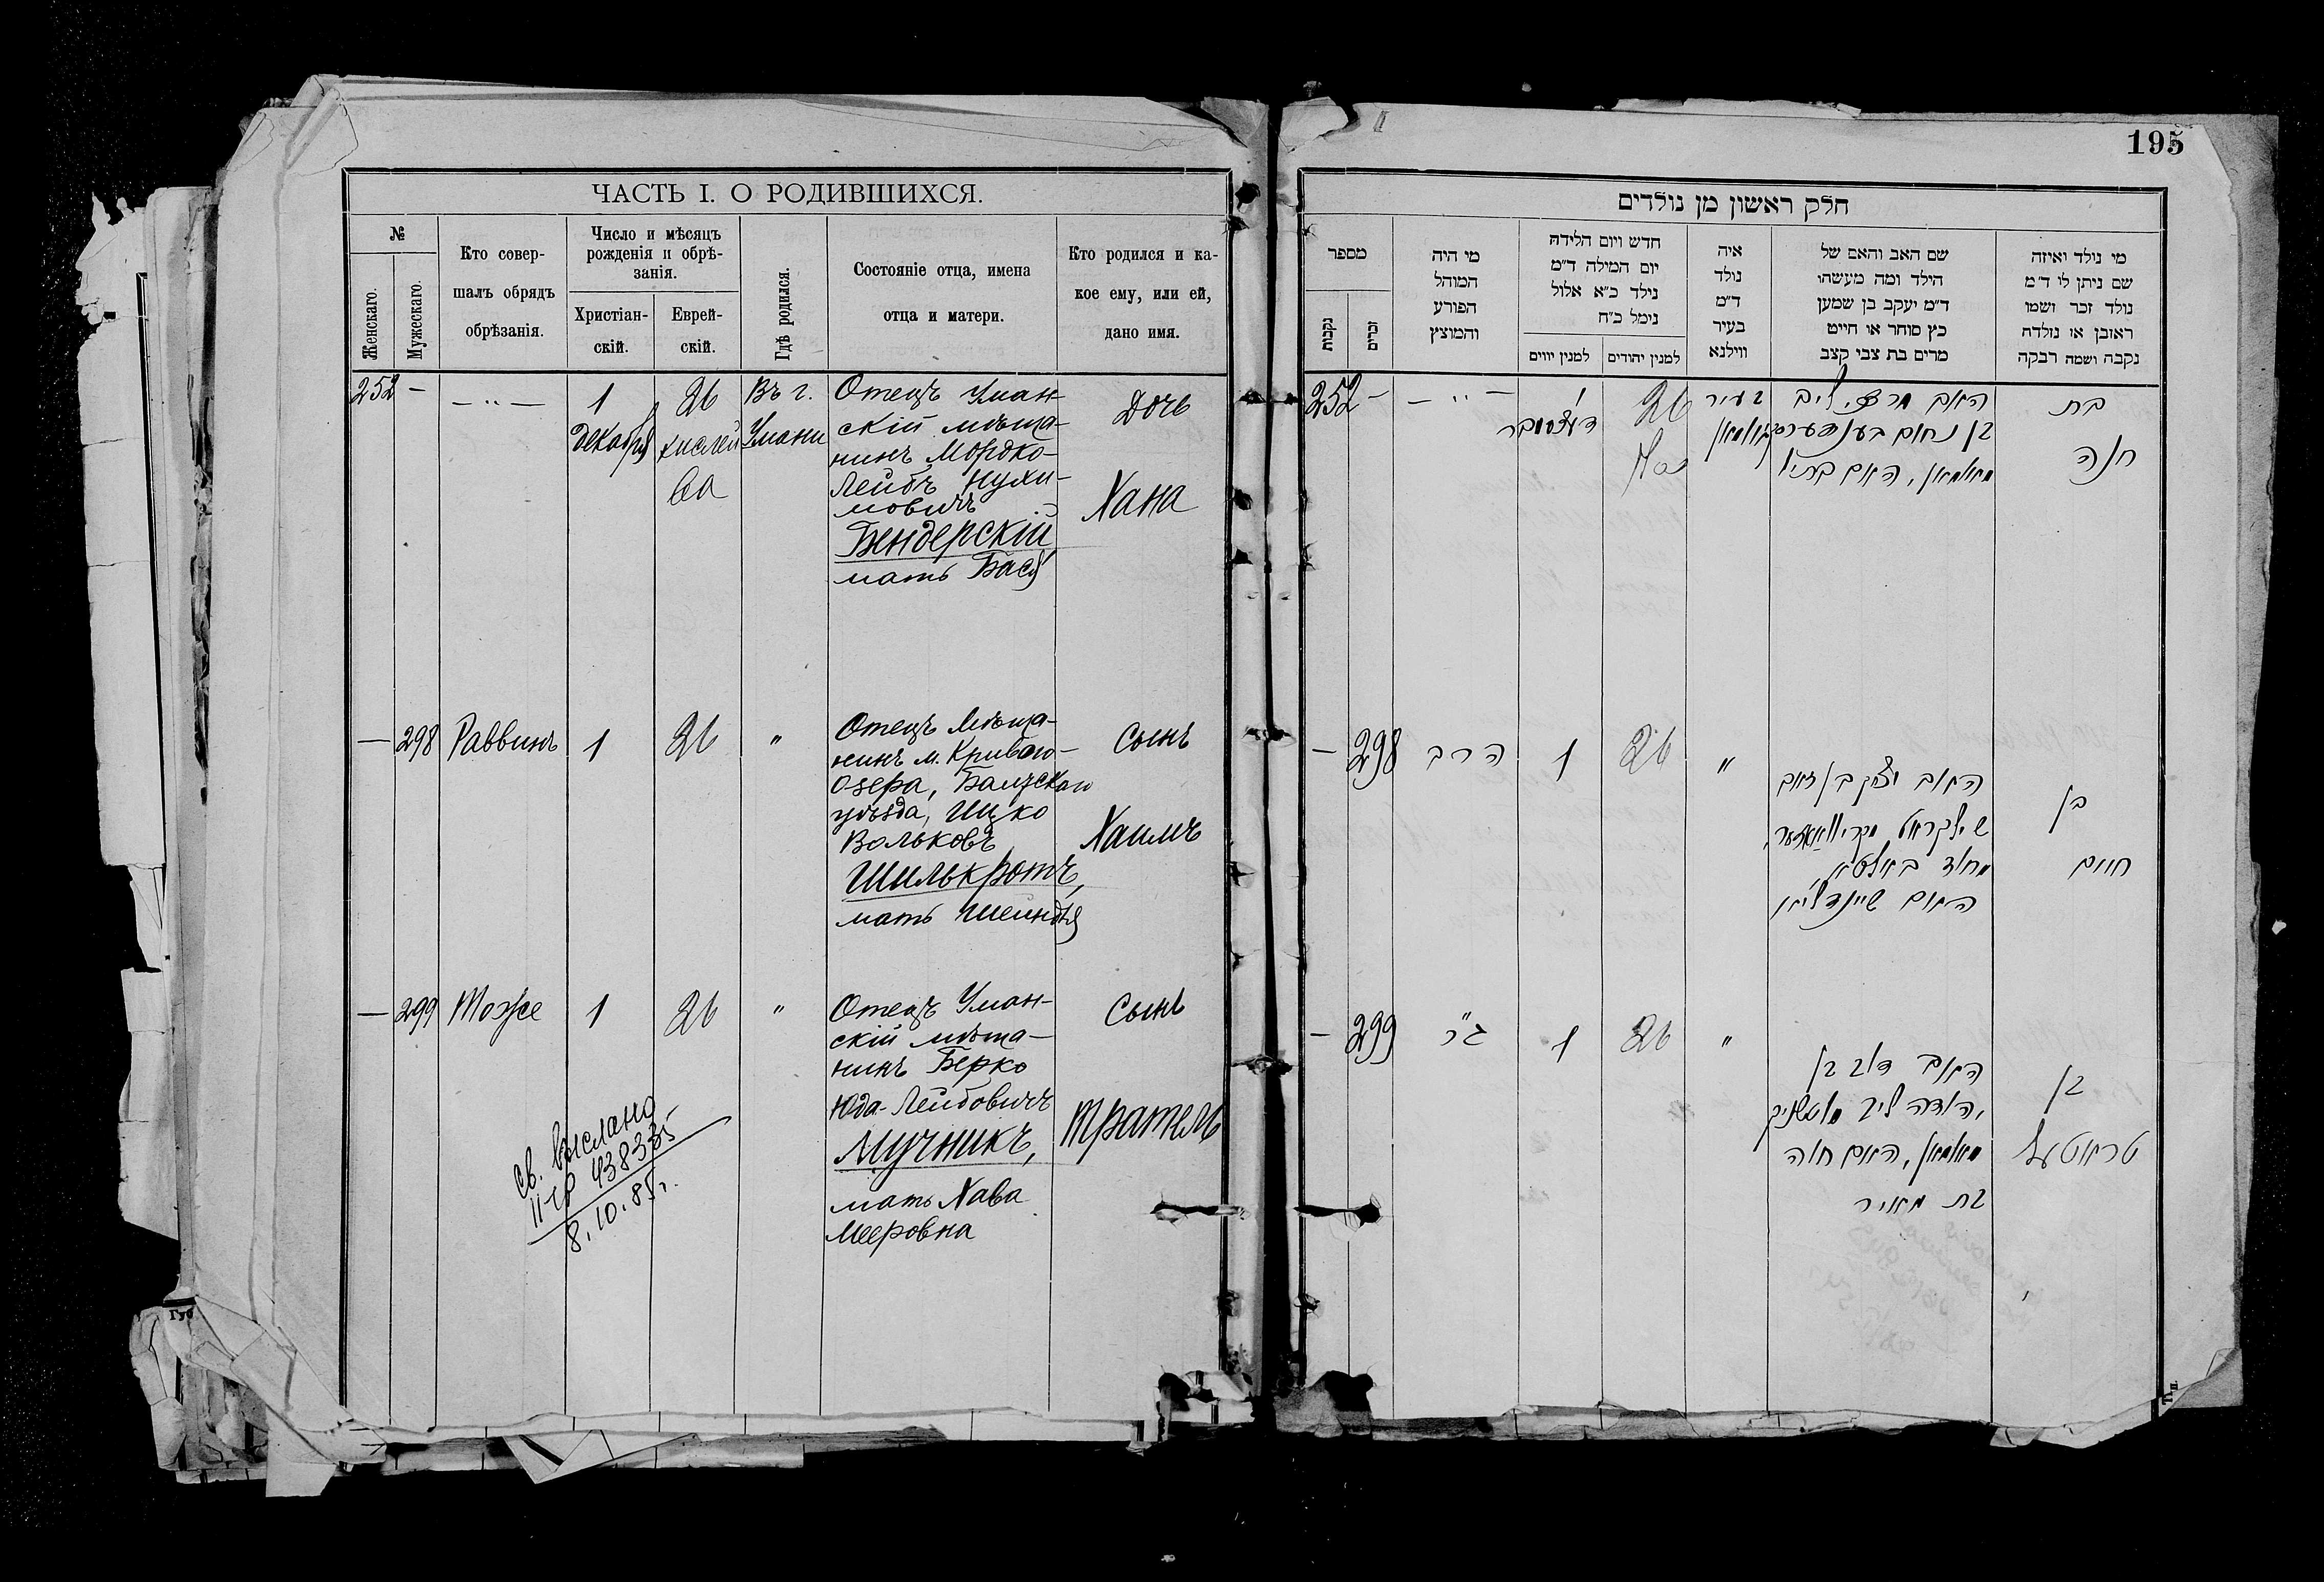 195
ЧАСТЬ I. О РОДИВШИХСЯ.
№
Женскаго.
Мужескаго.
Кто совер-
шалъ обрядъ
обрѣзанія.
Число и мѣсяцъ
рожденія и обрѣ-
занія.
Христіан-
скій.
Еврей-
скій.
Гдѣ родился.
Состояніе отца, имена
отца и матери.
Кто родился и ка-
кое ему, или ей,
дано имя.
252 — — " — 1 26 Въ г.
Декабря Кислей Умани
ва
Отецъ Уман-
скій мѣща-
нинъ Мордко-
Лейбъ Нухи-
мовичъ
Бендерскій
мать Бася
Дочь
Хана
— 298 Раввинъ 1 26 "
Отецъ мѣща-
нинъ м. Криваго-
Озера, Балтскаго
уѣзда, Ицко
Вольковъ
Шилькротъ,
мать Шейндля
Сынъ
Хаимъ
— 299 Тоже 1 26 "
Отецъ Уман-
скій мѣща-
нинъ Берко
Юда-Лейбовичъ
Мучникъ,
мать Хава
Мееровна
Сынъ
Тратель
Св. выслано
8.10.85г.
חלק ראשון מן נולדים
מספר
נקבות
זכרים
מי היה
המוהל
הפורע
והמוצץ
חדש ויום הלידה
יום המילה ד"מ
נילד כ"א אלול
נימל כ"ח
למנין יווים
למנין יהודים
איה
נולד
ד"מ
בעיר
ווילנא
שם האב והאם של
הילד ומה מעשהו
ד"מ יעקב בן שמען
כץ סוחר או חייט
מרים בת צבי קצב
מי נולד ואיזה
שם ניתן לו ד"מ
נולד זכר ושמו
ראובן או נולדה
נקבה ושמה רבקה
252 — — " — 1 26 בעיר
בן נחום
בת
חנה
— 298 הרב 1 26 "
האב יצחק בן
שילקראט
האם שיינדליא
בן
חיים
— 299 ג"ר 1 26 "
האב דוב בן
יהודה ליב מוטשניק
מאומאן, האם חוה
בת מאיר
בן
טראטעל